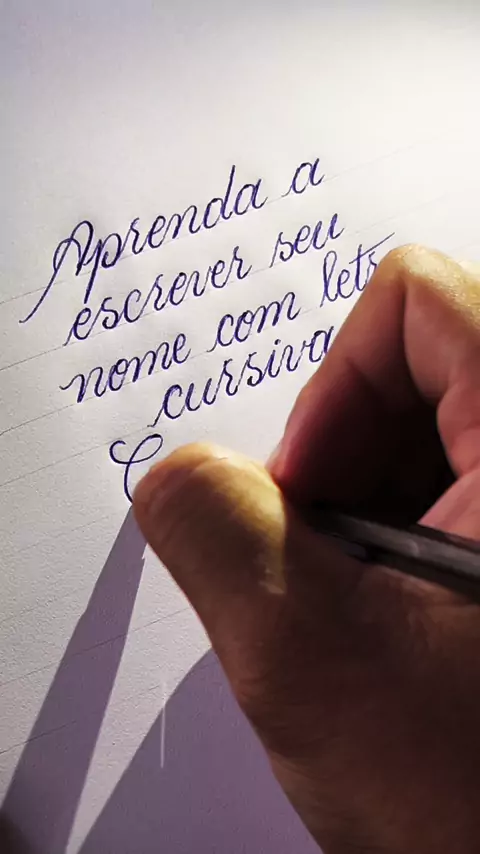 Aprenda a
escrever seu
nome com letr
cursiva
C